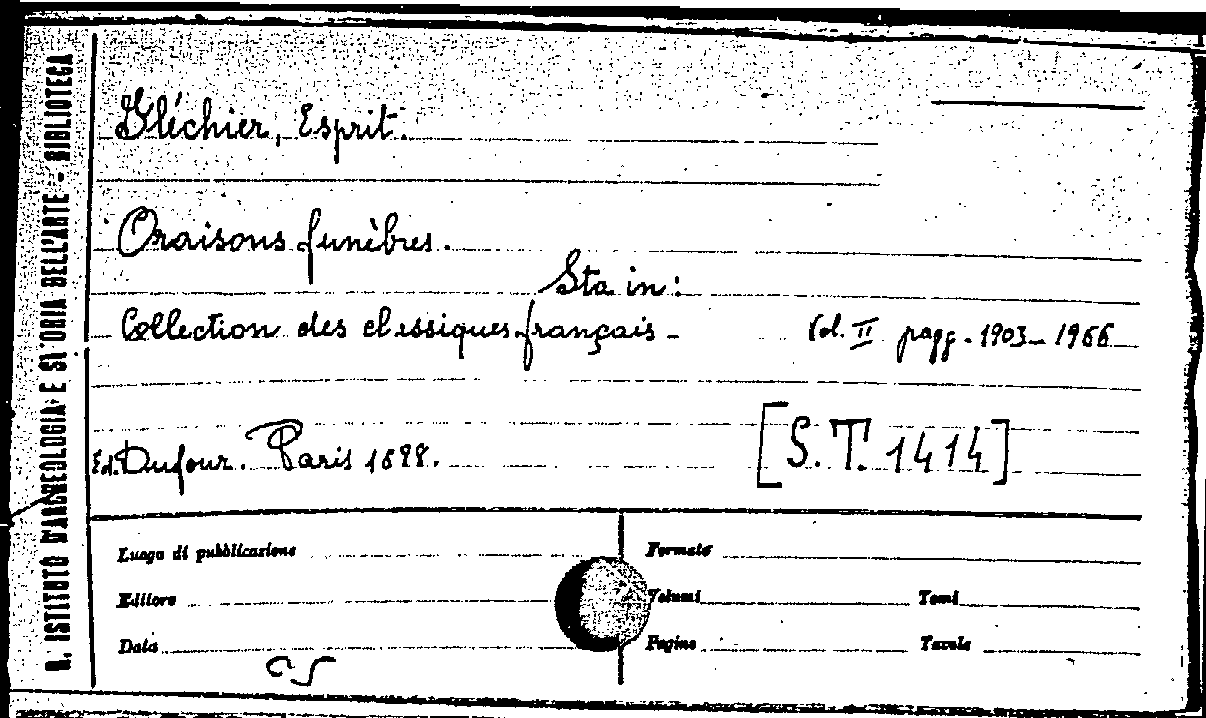 R. ISTITUTO D'ARCHEOLOGIA E STORIA DELL'ARTE - BIBLIOTECA
Fléchier, Esprit.
Oraisons funèbres.
Sta in:
Collection des classiques français - Vol. II pagg. 1903-1966
Ed. Dufour. Paris
[S.T. 1414]
Luogo di pubblicazione
Formato
Editore
Volumi
Tomi
Data
Pagine
Tavole